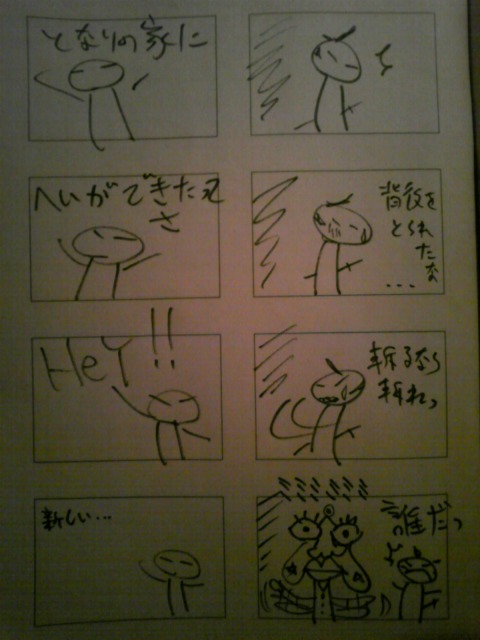 となりの家に
へいができたヌ
さ
HeY!!
新しい…
背後を
とられ
たな
…
斬るなら
斬れっ
誰だっ